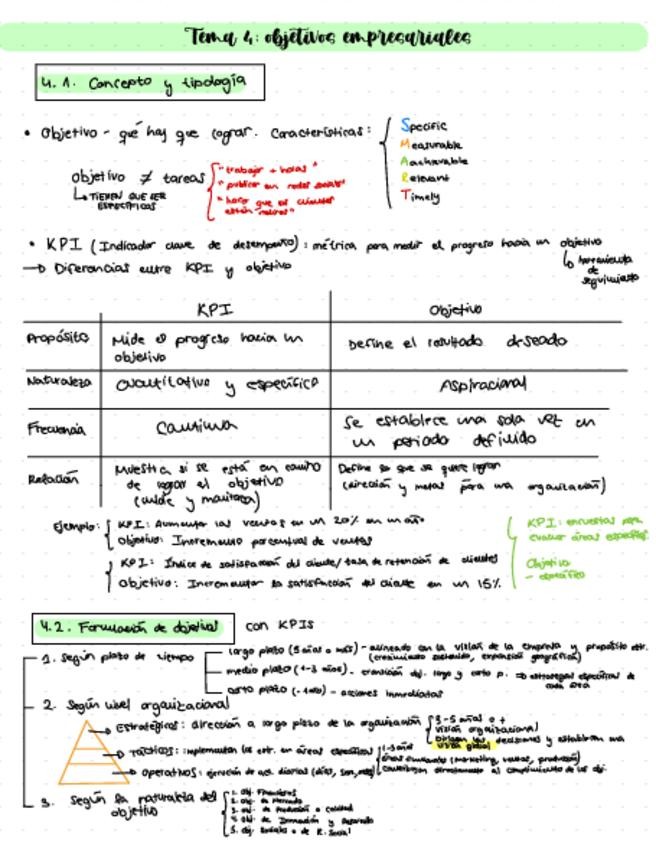 Tema 4: objetivos empresariales
4.1. Concepto y tipología
• Objetivo - qué hay que lograr. Características:
Specific
Measurable
Achievable
Relevant
Timely
objetivo ≠ tareas
↳ TIENEN QUE SER
ESPECÍFICOS
"trabajar + horas"
"publicar en redes sociales"
"hacer que los clientes
estén"
• KPI (Indicador clave de desempeño): métrica para medir el progreso hacia un objetivo
↳ herramienta
de
seguimiento
→ Diferencias entre KPI y objetivo
KPI Objetivo
Propósito Mide el progreso hacia un
objetivo
Define el resultado deseado
Naturaleza Cuantitativo y específico Aspiracional
Frecuencia Continua Se establece una sola vez en
un periodo definido
Relación Muestra si se está en camino
de lograr el objetivo
(mide y monitorea)
Define lo que se quiere lograr
(dirección y metas para una organización)
Ejemplo: KPI: Aumentar las ventas en un 20% en un año
Objetivo: Incremento porcentual de ventas
KPI: Índice de satisfacción del cliente/ tasa de retención de clientes
Objetivo: Incrementar la satisfacción del cliente en un 15%
KPI: encuestas para
evaluar áreas específicas
Objetivo
- específico
4.2. Formulación de objetivos con KPIS
1. Según plazo de tiempo
largo plazo (5 años o más) - alineado con la visión de la empresa y propósito
(crecimiento sostenido, expansión geográfica)
medio plazo (1-3 años) - largo y corto p. ⇒ estrategias específicas de
cada área
corto plazo (-1 año) - acciones inmediatas
2. Según nivel organizacional
→ Estratégicos: dirección a largo plazo de la organización
3-5 años o +
visión organizacional
las decisiones y establecen una
visión global
→ Tácticos: implementan los estr. en áreas específicas
1-3 años
áreas (marketing, ventas, producción)
contribuyen directamente al cumplimiento de los obj.
→ Operativos: ejecución de act. diarias (días, sem, mes)
3. Según la naturaleza del
objetivo
1. obj. Financieros
2. obj. de Mercado
3. obj. de Producción o Calidad
4. obj. de Innovación y Desarrollo
5. obj. Sociales o de R. Social